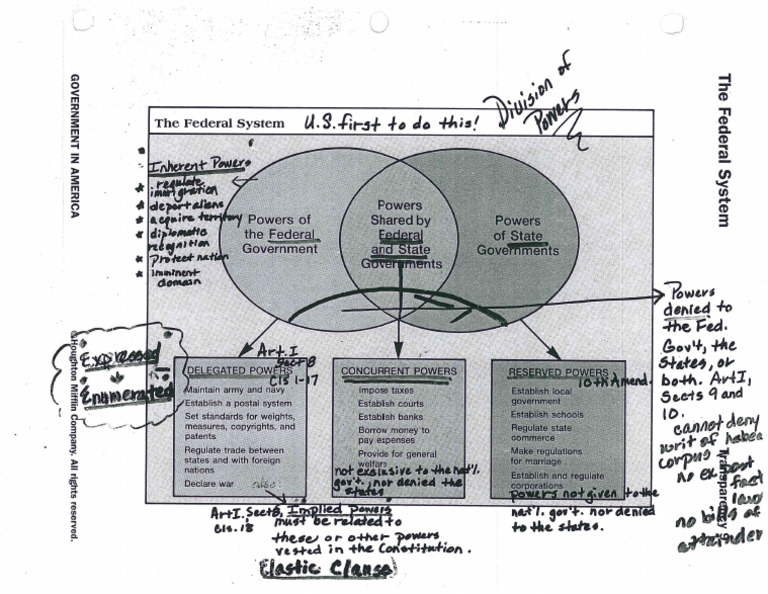 The Federal System U.S. first to do this!
Division of
Powers
GOVERNMENT IN AMERICA
©Houghton Mifflin Company. All rights reserved.
The Federal System
Transparency
Inherent Powers
regulate
immigration
deport aliens
acquire territory
diplomatic
recognition
Protect nation
imminent
domain
Powers of
the Federal
Government
Powers
Shared by
Federal
and State
Governments
Powers
of State
Governments
Expressed
Enumerated
Art. I
Sect 8
Cls 1-17
DELEGATED POWERS
Maintain army and navy
Establish a postal system
Set standards for weights,
measures, copyrights, and
patents
Regulate trade between
states and with foreign
nations
Declare war
CONCURRENT POWERS
Impose taxes
Establish courts
Establish banks
Borrow money to
pay expenses
Provide for general
welfare
not exclusive to the nat'l.
gov't., nor denied the
states
RESERVED POWERS
10th Amend.
Establish local
government
Establish schools
Regulate state
commerce
Make regulations
for marriage
Establish and regulate
corporations
powers not given to the
nat'l. gov't. nor denied
to the states.
Powers
denied to
the Fed.
Gov't, the
States, or
both. Art I,
Sects 9 and
10.
cannot deny
writ of habea
corpus
no ex post
facto
laws
no bills of
attainder
Art I. Sect 8, Implied powers
cls. 18 must be related to
these or other powers
vested in the Constitution.
Elastic Clause